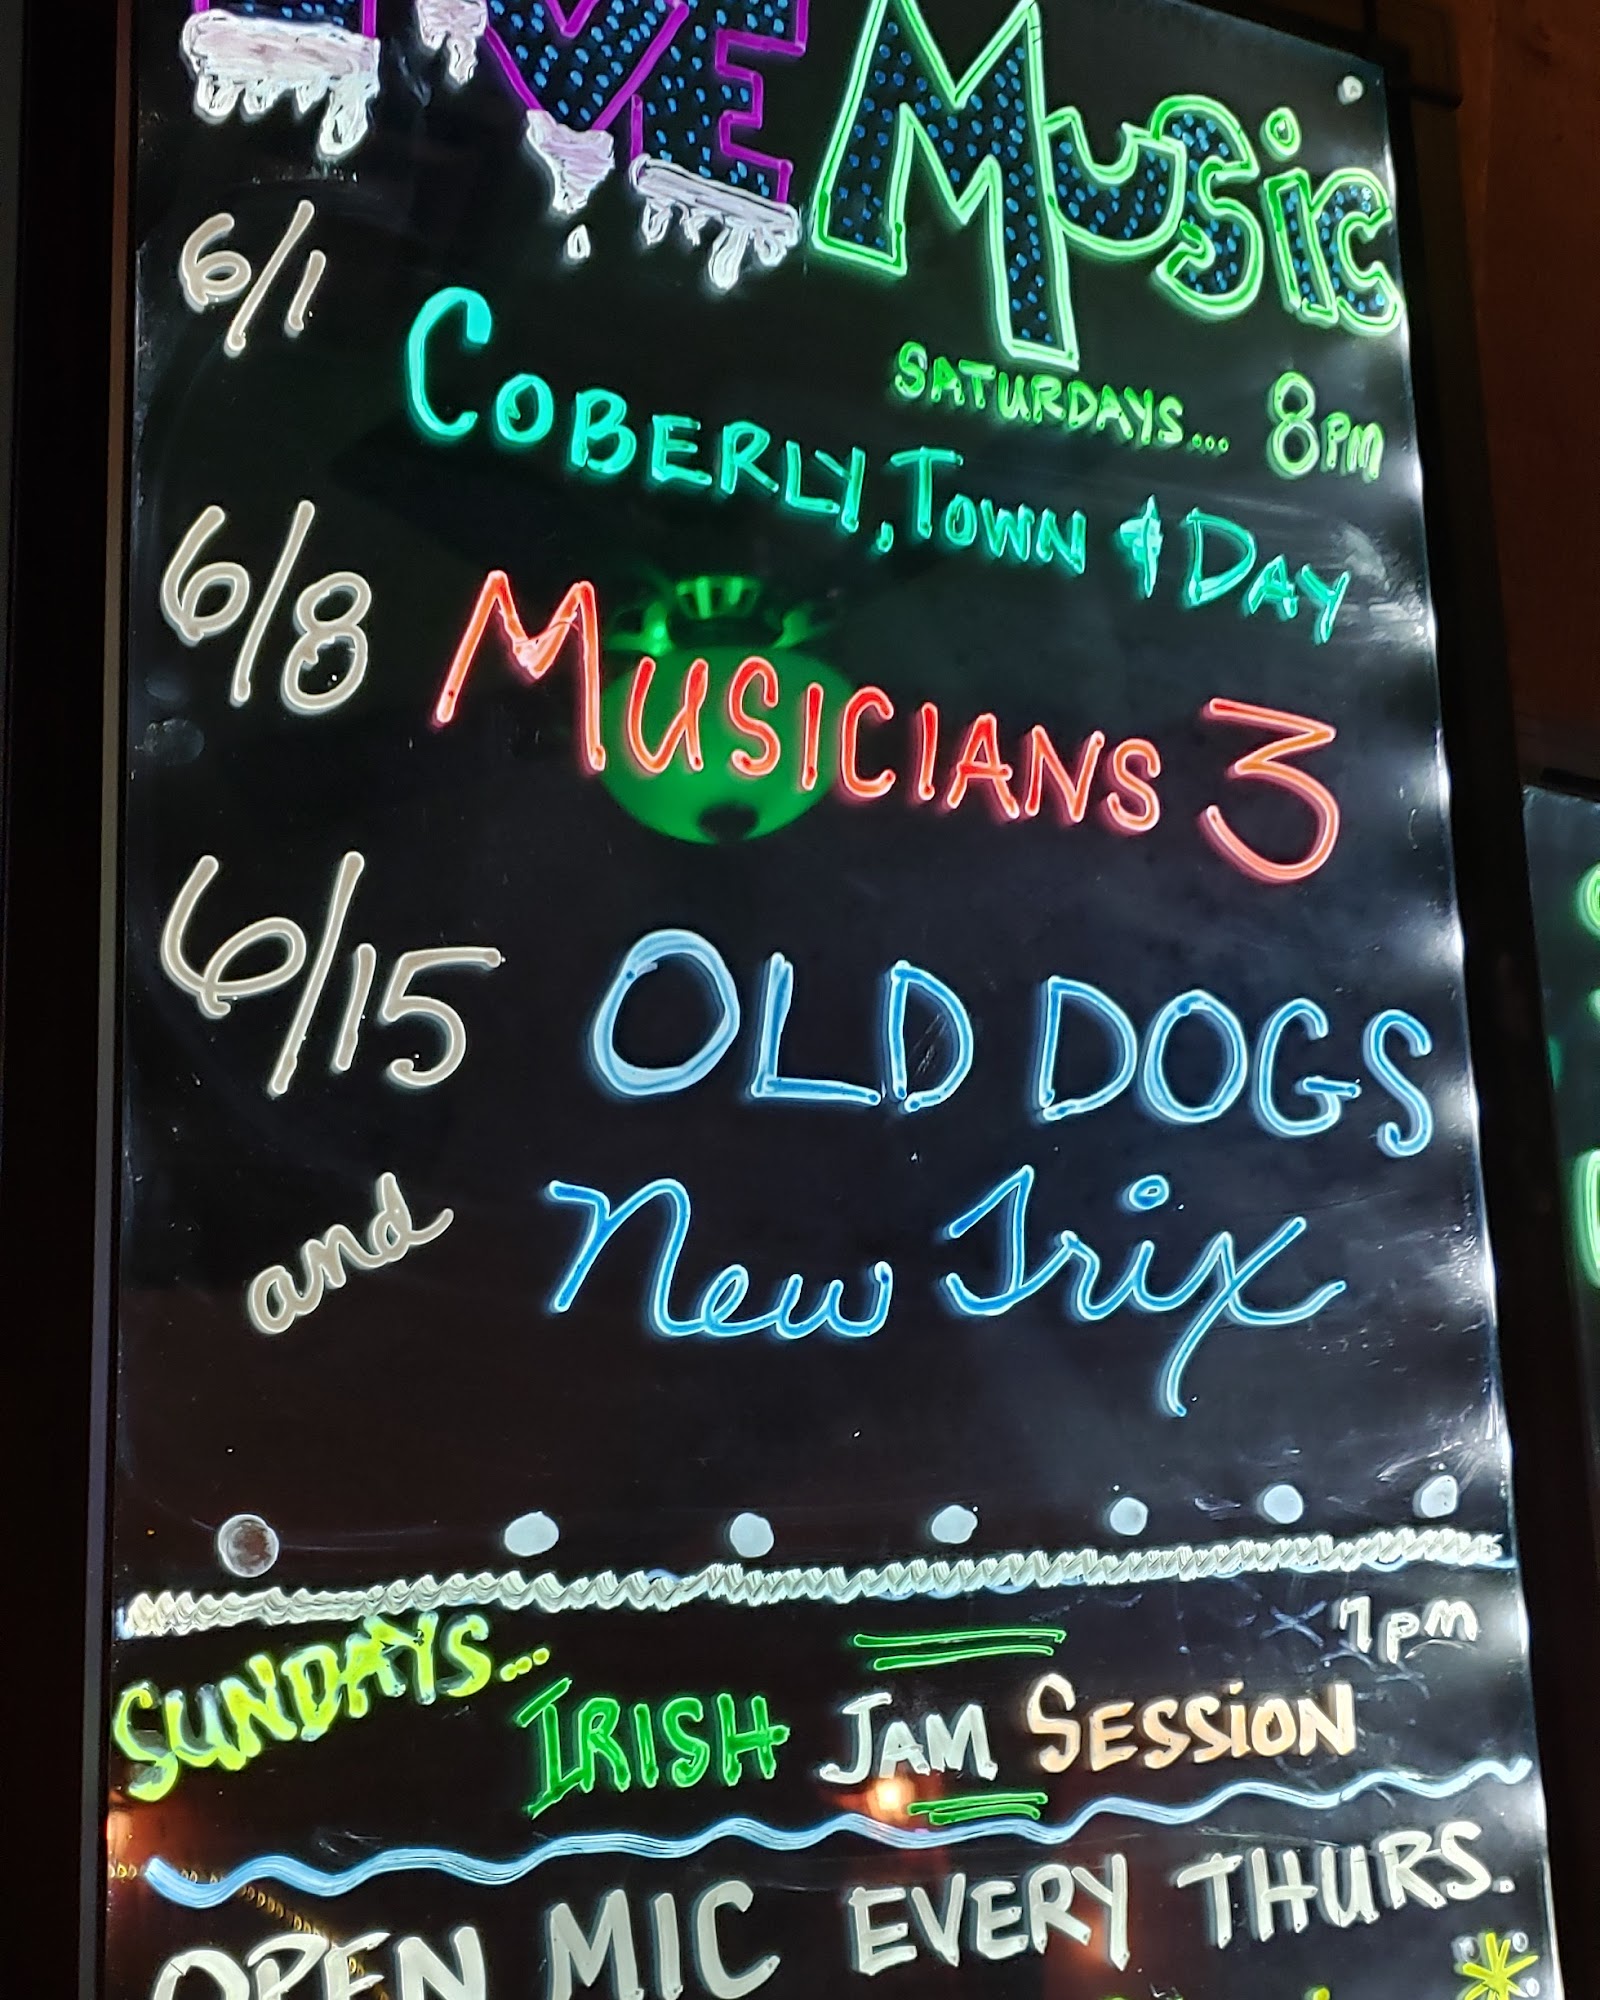 LIVE Music
SATURDAYS... 8PM
6/1 COBERLY, TOWN & DAY
6/8 MUSICIANS 3
6/15 OLD DOGS
and New Trix
SUNDAYS... 7pm
IRISH JAM SESSION
OPEN MIC EVERY THURS.